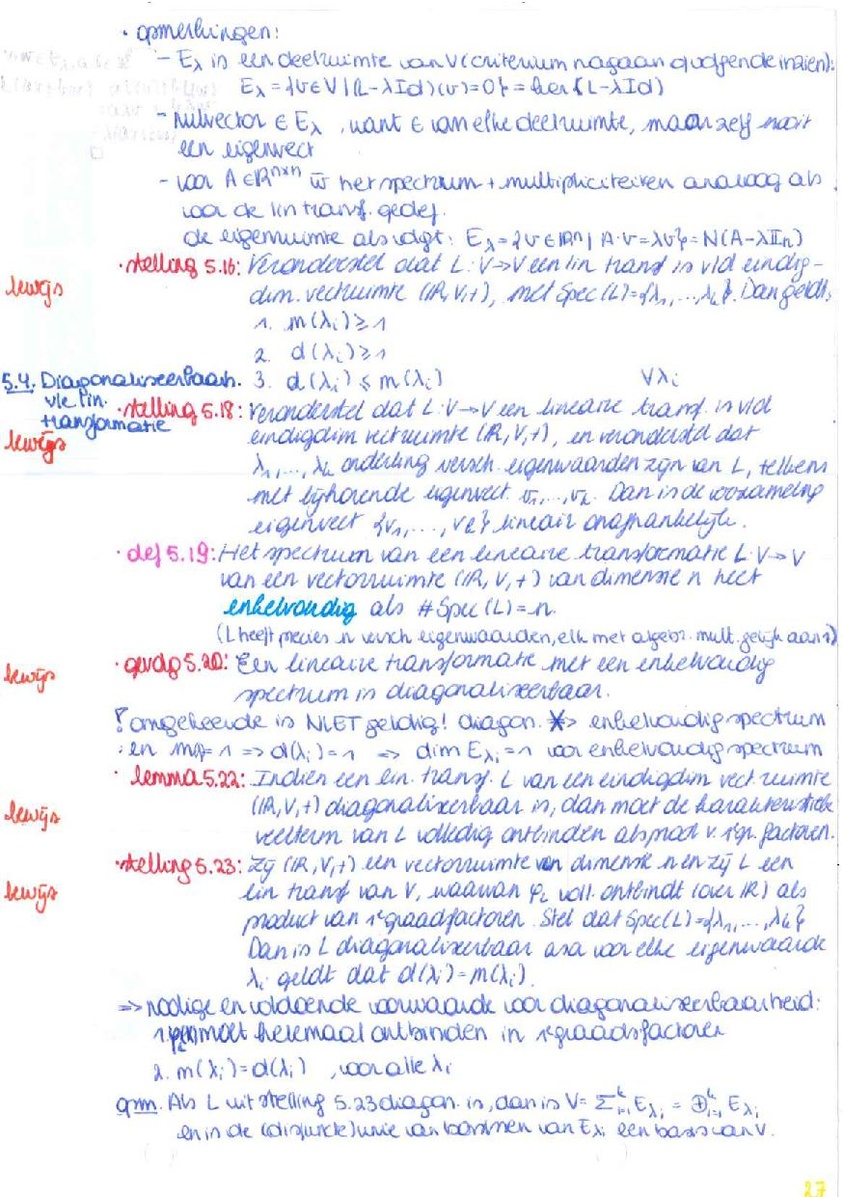 · opmerkingen:
- Eλ is een deelruimte van V (criterium nagaan of volgende inzien):
Eλ = {v∈V | (L-λId)(v)=0} = ker(L-λId)
- Nulvector ∈ Eλ, want ∈ van elke deelruimte, maar zelf nooit
een eigenvect
- voor A∈ℝⁿˣⁿ w̄ het spectrum + multipliciteiten analoog als
voor de lin transf. gedef.
de eigenruimte als volgt: Eλ = {v∈ℝⁿ | A·v=λv} = N(A-λIn)
· stelling 5.16: Veronderstel dat L:V→V een lin transf is v/d eindig-
bewijs
dim. vectruimte (ℝ,V,+), met Spec(L)={λ₁,...,λk}. Dan geldt:
1. m(λi)≥1
2. d(λi)≥1
3. d(λi) ≤ m(λi) ∀λi
5.4. Diagonaliseerbaarh.
v/e lin.
transformatie
· stelling 5.18: Veronderstel dat L:V→V een lineaire transf. is v/d
bewijs
eindigdim vectruimte (ℝ,V,+), en veronderstel dat
λ₁,...,λk onderling versch. eigenwaarden zijn van L, telkens
met bijhorende eigenvect. v₁,...,vk. Dan is de verzameling
eigenvect {v₁,...,vk} lineair onafhankelijk.
· def 5.19: Het spectrum van een lineaire transformatie L:V→V
van een vectorruimte (ℝ,V,+) van dimensie n heet
enkelvoudig als #Spec(L)=n.
(L heeft precies n versch eigenwaarden, elk met algebr. mult. gelijk aan 1)
bewijs
· gevolg 5.20: Een lineaire transformatie met een enkelvoudig
spectrum is diagonaliseerbaar.
! omgekeerde is NIET geldig! diagon. ⇏ enkelvoudig spectrum
: en m = 1 => d(λi)=1 => dim Eλi=1 voor enkelvoudig spectrum
· lemma 5.22: Indien een lin. transf. L van een eindigdim vect. ruimte
bewijs
(ℝ,V,+) diagonaliseerbaar is, dan moet de karakteristieke
veelterm van L volledig ontbinden als prod v. 1ᵉgr. factoren.
· stelling 5.23: Zij (ℝ,V,+) een vectorruimte van dimensie n en zij L een
bewijs
lin transf van V, waarvan φL voll. ontbindt (over ℝ) als
product van 1ᵉgraadfactoren. Stel dat Spec(L)={λ₁,...,λk}
Dan is L diagonaliseerbaar asa voor elke eigenwaarde
λi geldt dat d(λi)=m(λi).
=> nodige en voldoende voorwaarde voor diagonaliseerbaarheid:
1. moet helemaal ontbinden in 1ᵉgraadsfactoren
2. m(λi)=d(λi), voor alle λi
opm. Als L uit stelling 5.23 diagon. is, dan is V= Σᵏᵢ₌₁ Eλi = ⊕ᵏᵢ₌₁ Eλi
en is de (disjuncte) unie van basissen van Eλi een basis van V.
27